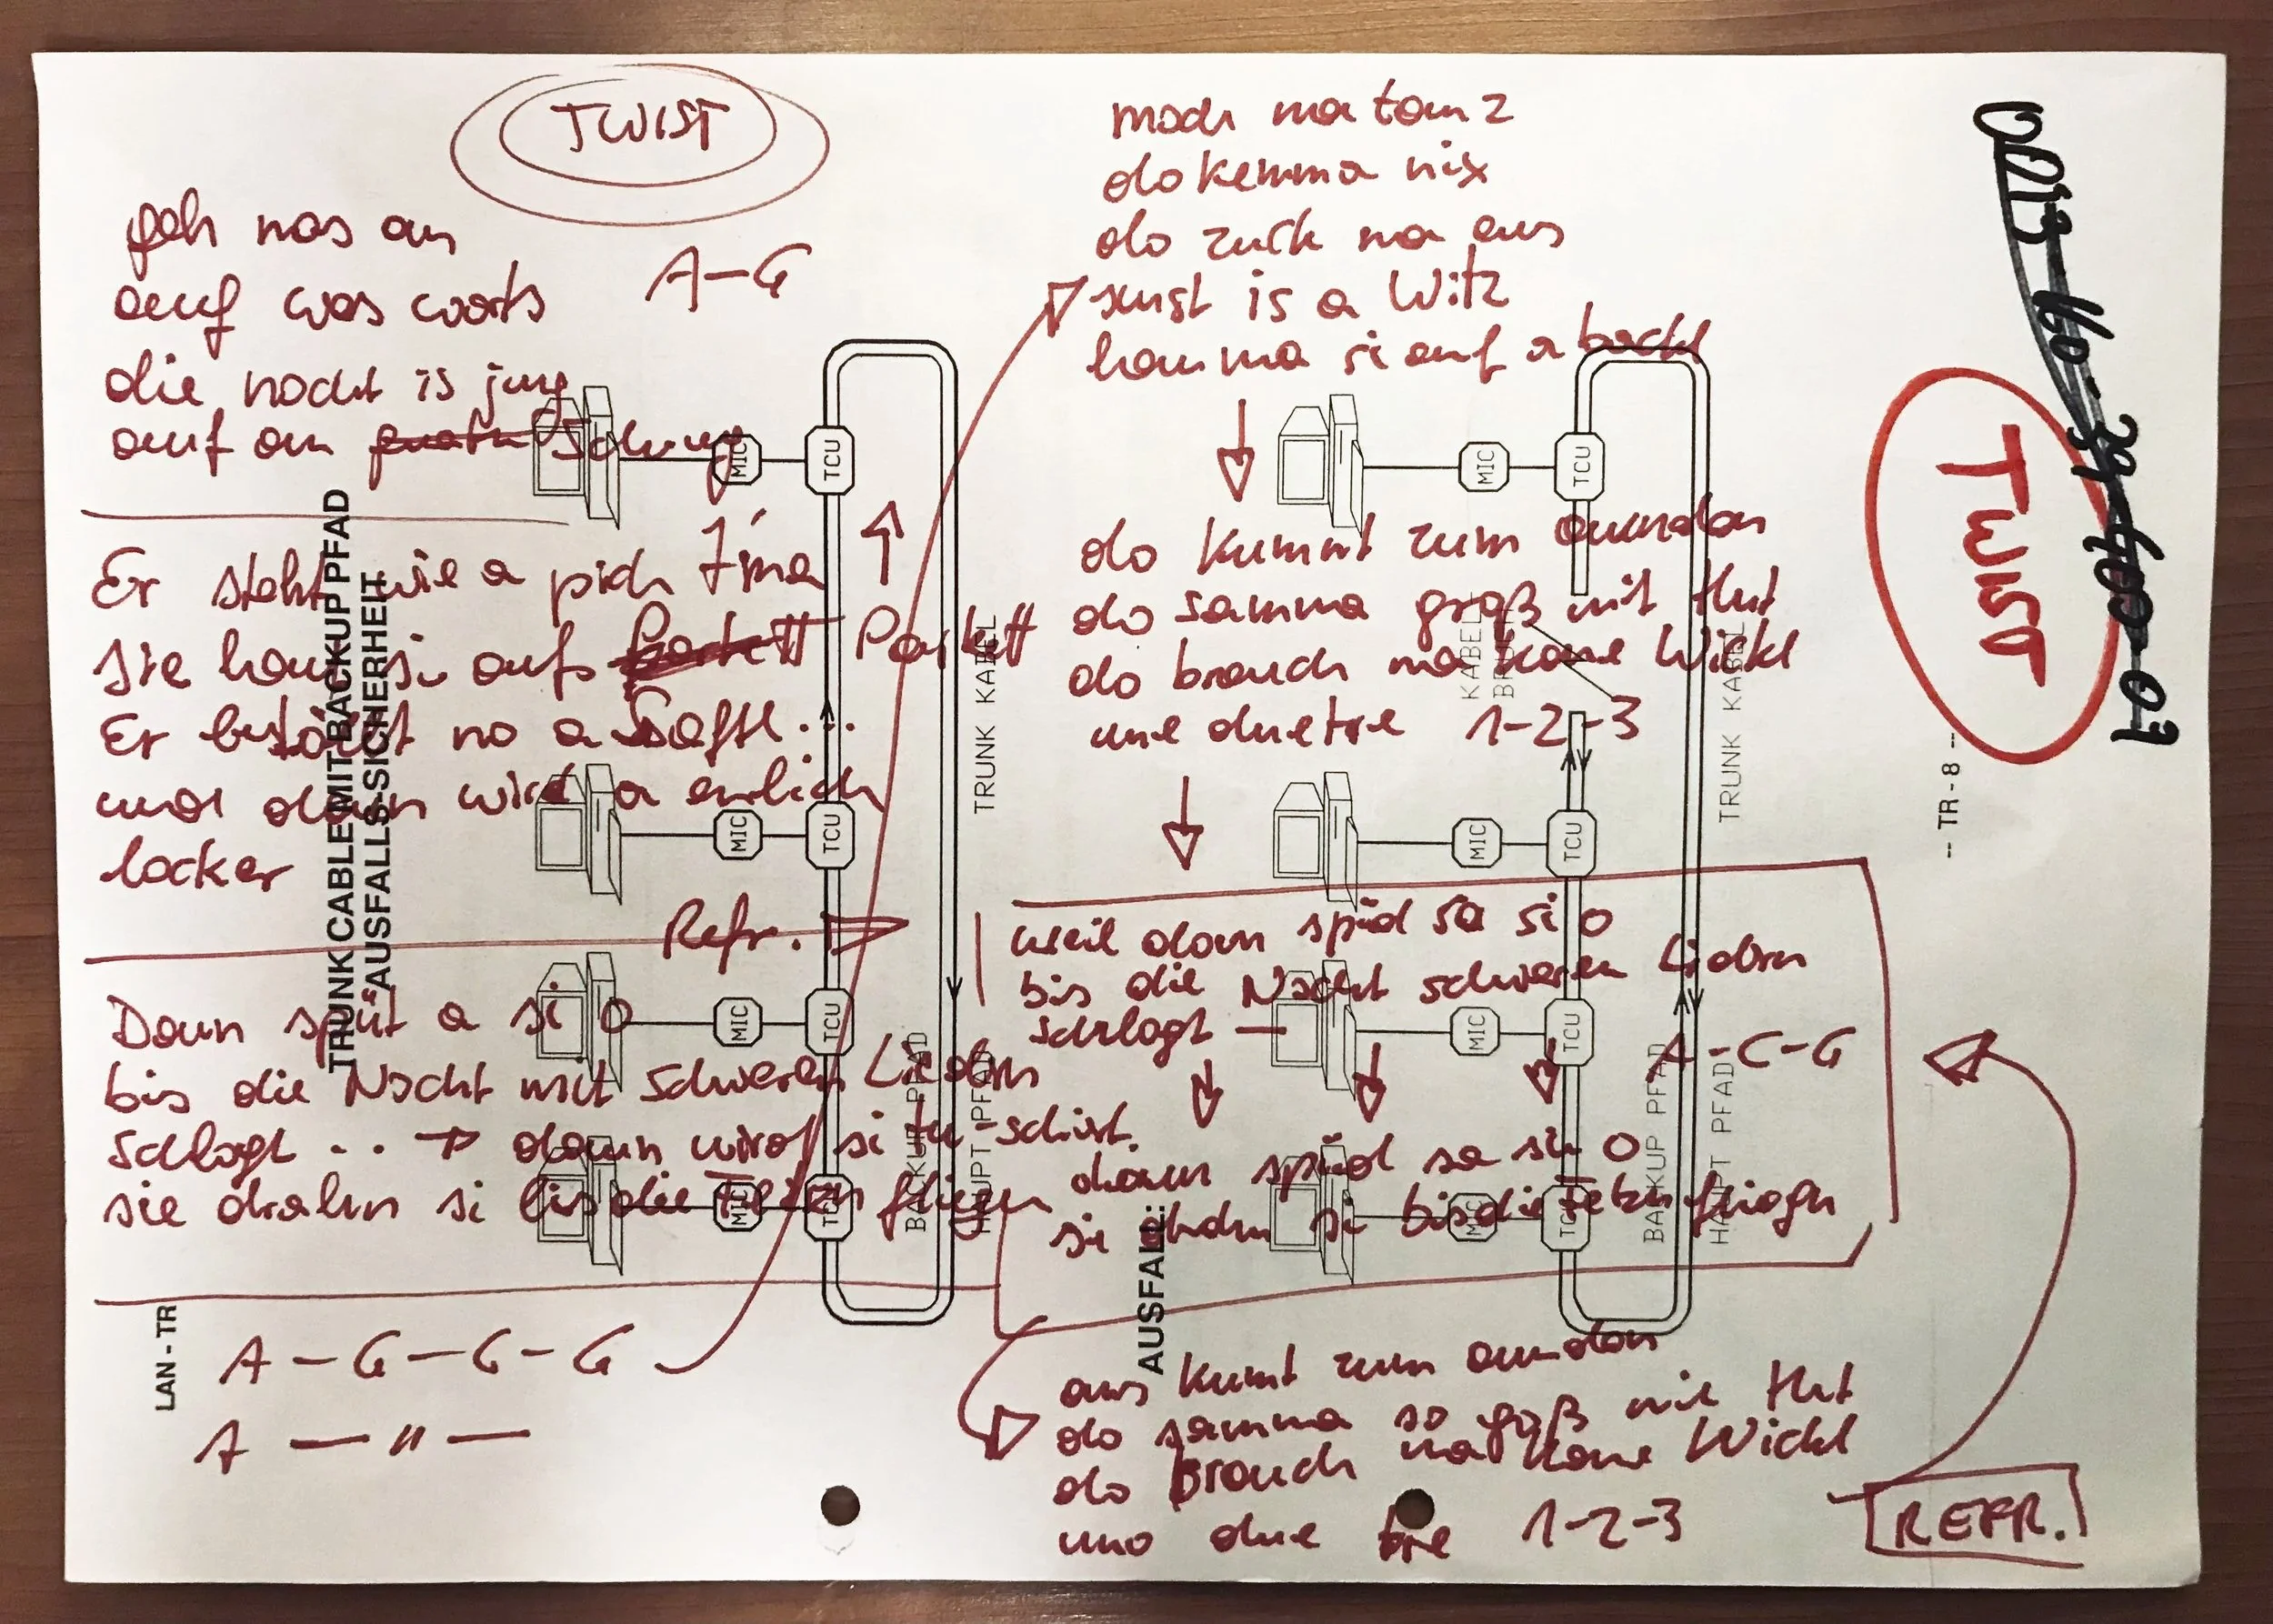 TWIST
geh mas an
auf was worts
die nocht is jung
auf an Schung
A-G
Er steht wie a pich
Sie haun si aufs Parkett
Er bstöllt no a Saftl...
und dann wird a endlich
locker
Refr.
Dann spüt a si o
bis die Nacht mit schweren Liedern
schlogt .. → dann wird si
sie drahn si bis die Fetzn fliegn
A - G - G - G
A — " —
moch ma tanz
do kemma nix
do zuck ma aus
sunst is a Witz
hamma si auf a backl
do kummt zum aundan
do samma groß mit Hut
do brauch ma kane Wickl
une due tre 1-2-3
weil dann spüd sa si o
bis die Nacht schweren Liedern
schlogt —
A-C-G
dann spüd sa si o
sie drahn si bis die Fetzn fliegn
ans kumt zum aundan
do samma so groß mit Hut
do brauch ma kane Wickl
uno due tre 1-2-3
REFR.
TWIST
TRUNK CABLE MIT BACKUP PFAD
"AUSFALLS-SICHERHEIT
LAN - TR
MIC
TCU
MIC
TCU
MIC
TCU
MIC
TCU
TRUNK KABEL
BACKUP PFAD
HAUPT PFAD
AUSFALL:
MIC
TCU
MIC
TCU
MIC
TCU
MIC
TCU
KABEL
BRUCH
TRUNK KABEL
BACKUP PFAD
HAUPT PFAD
-- TR-8 --